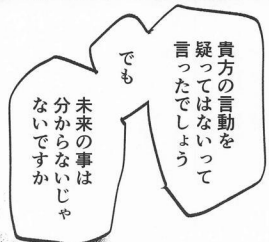 貴方の言動を
疑ってはないって
言ったでしょう
でも
未来の事は
分からないじゃ
ないですか